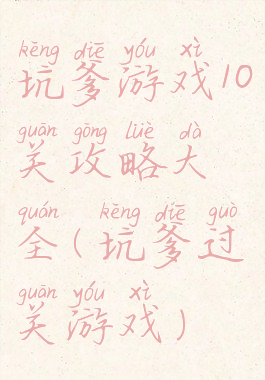 kēng diē yóu xì
坑爹游戏10
guān gōng lüè dà
关攻略大
quán kēng diē guò
全(坑爹过
guān yóu xì
关游戏)